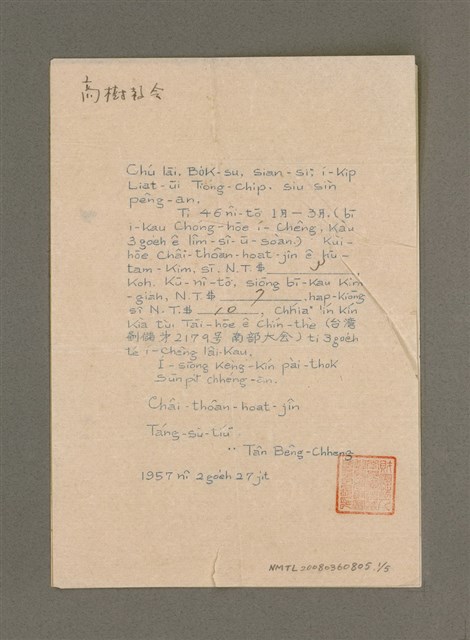 高樹教会
Chú lāi, Bo̍k-su, sian-siⁿ í-ki̍p
Lia̍t-ūi Tióng-chip. siu sìn
pêng-an.
Tī 46 nî-tō͘ 1月—3月. (bī
i-kau Chóng-hōe í-chêng. Kàu
3 goe̍h ê lîm-sî-ū-soàn.) Kùi-
hōe Châi-thoân-hoat-jîn ê hū-
tam-kim, sī. N.T.$
Koh. Kū-nî-tō͘, siōng bī-kau Kim
-gia̍h, N.T.$ 7 .hap-kiōng
sī N.T.$ 10 , Chhiáⁿ lín Kín
Kià tùi Tāi-hōe ê Chín-thè (台湾
南部大会) tī 3 goe̍h
té í-chêng lâi-Kau.
Í-siōng Kèng-Kín pài-thok
Sūn pit chhéng-an.
Châi-thoân-hoat-jîn
Táng-sū-tiúⁿ
Tân Bêng-Chheng
1957 nî 2 goe̍h 27 ji̍t
NMTL20080360805.1/5